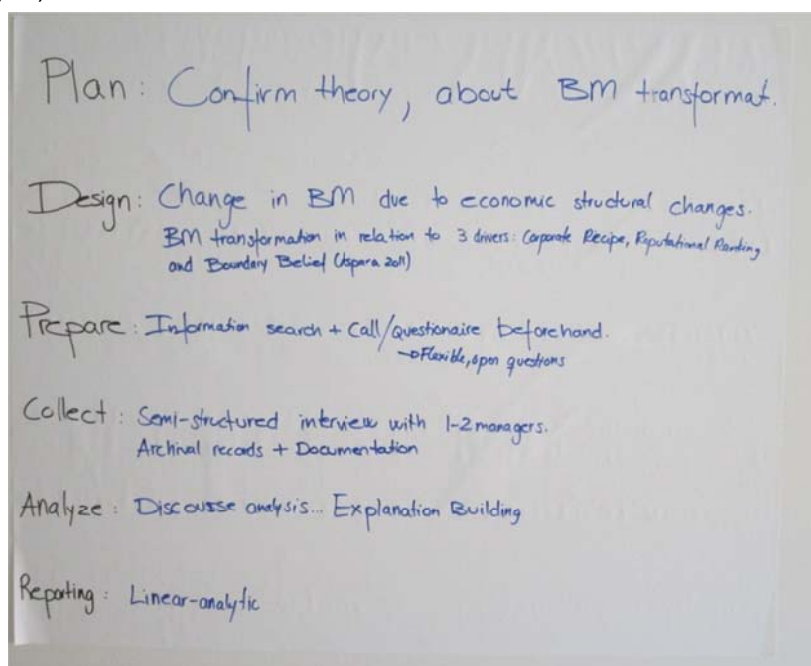 Plan: Confirm theory, about BM transformat.
Design: Change in BM due to economic structural changes.
BM transformation in relation to 3 drivers: Corporate Recipe, Reputational Ranking
and Boundary Belief (Aspara 2011)
Prepare: Information search + Call/Questionaire beforehand.
→Flexible, open questions
Collect: Semi-structured interview with 1-2 managers.
Archival records + Documentation
Analyze: Discourse analysis... Explanation Building
Reporting: Linear-analytic